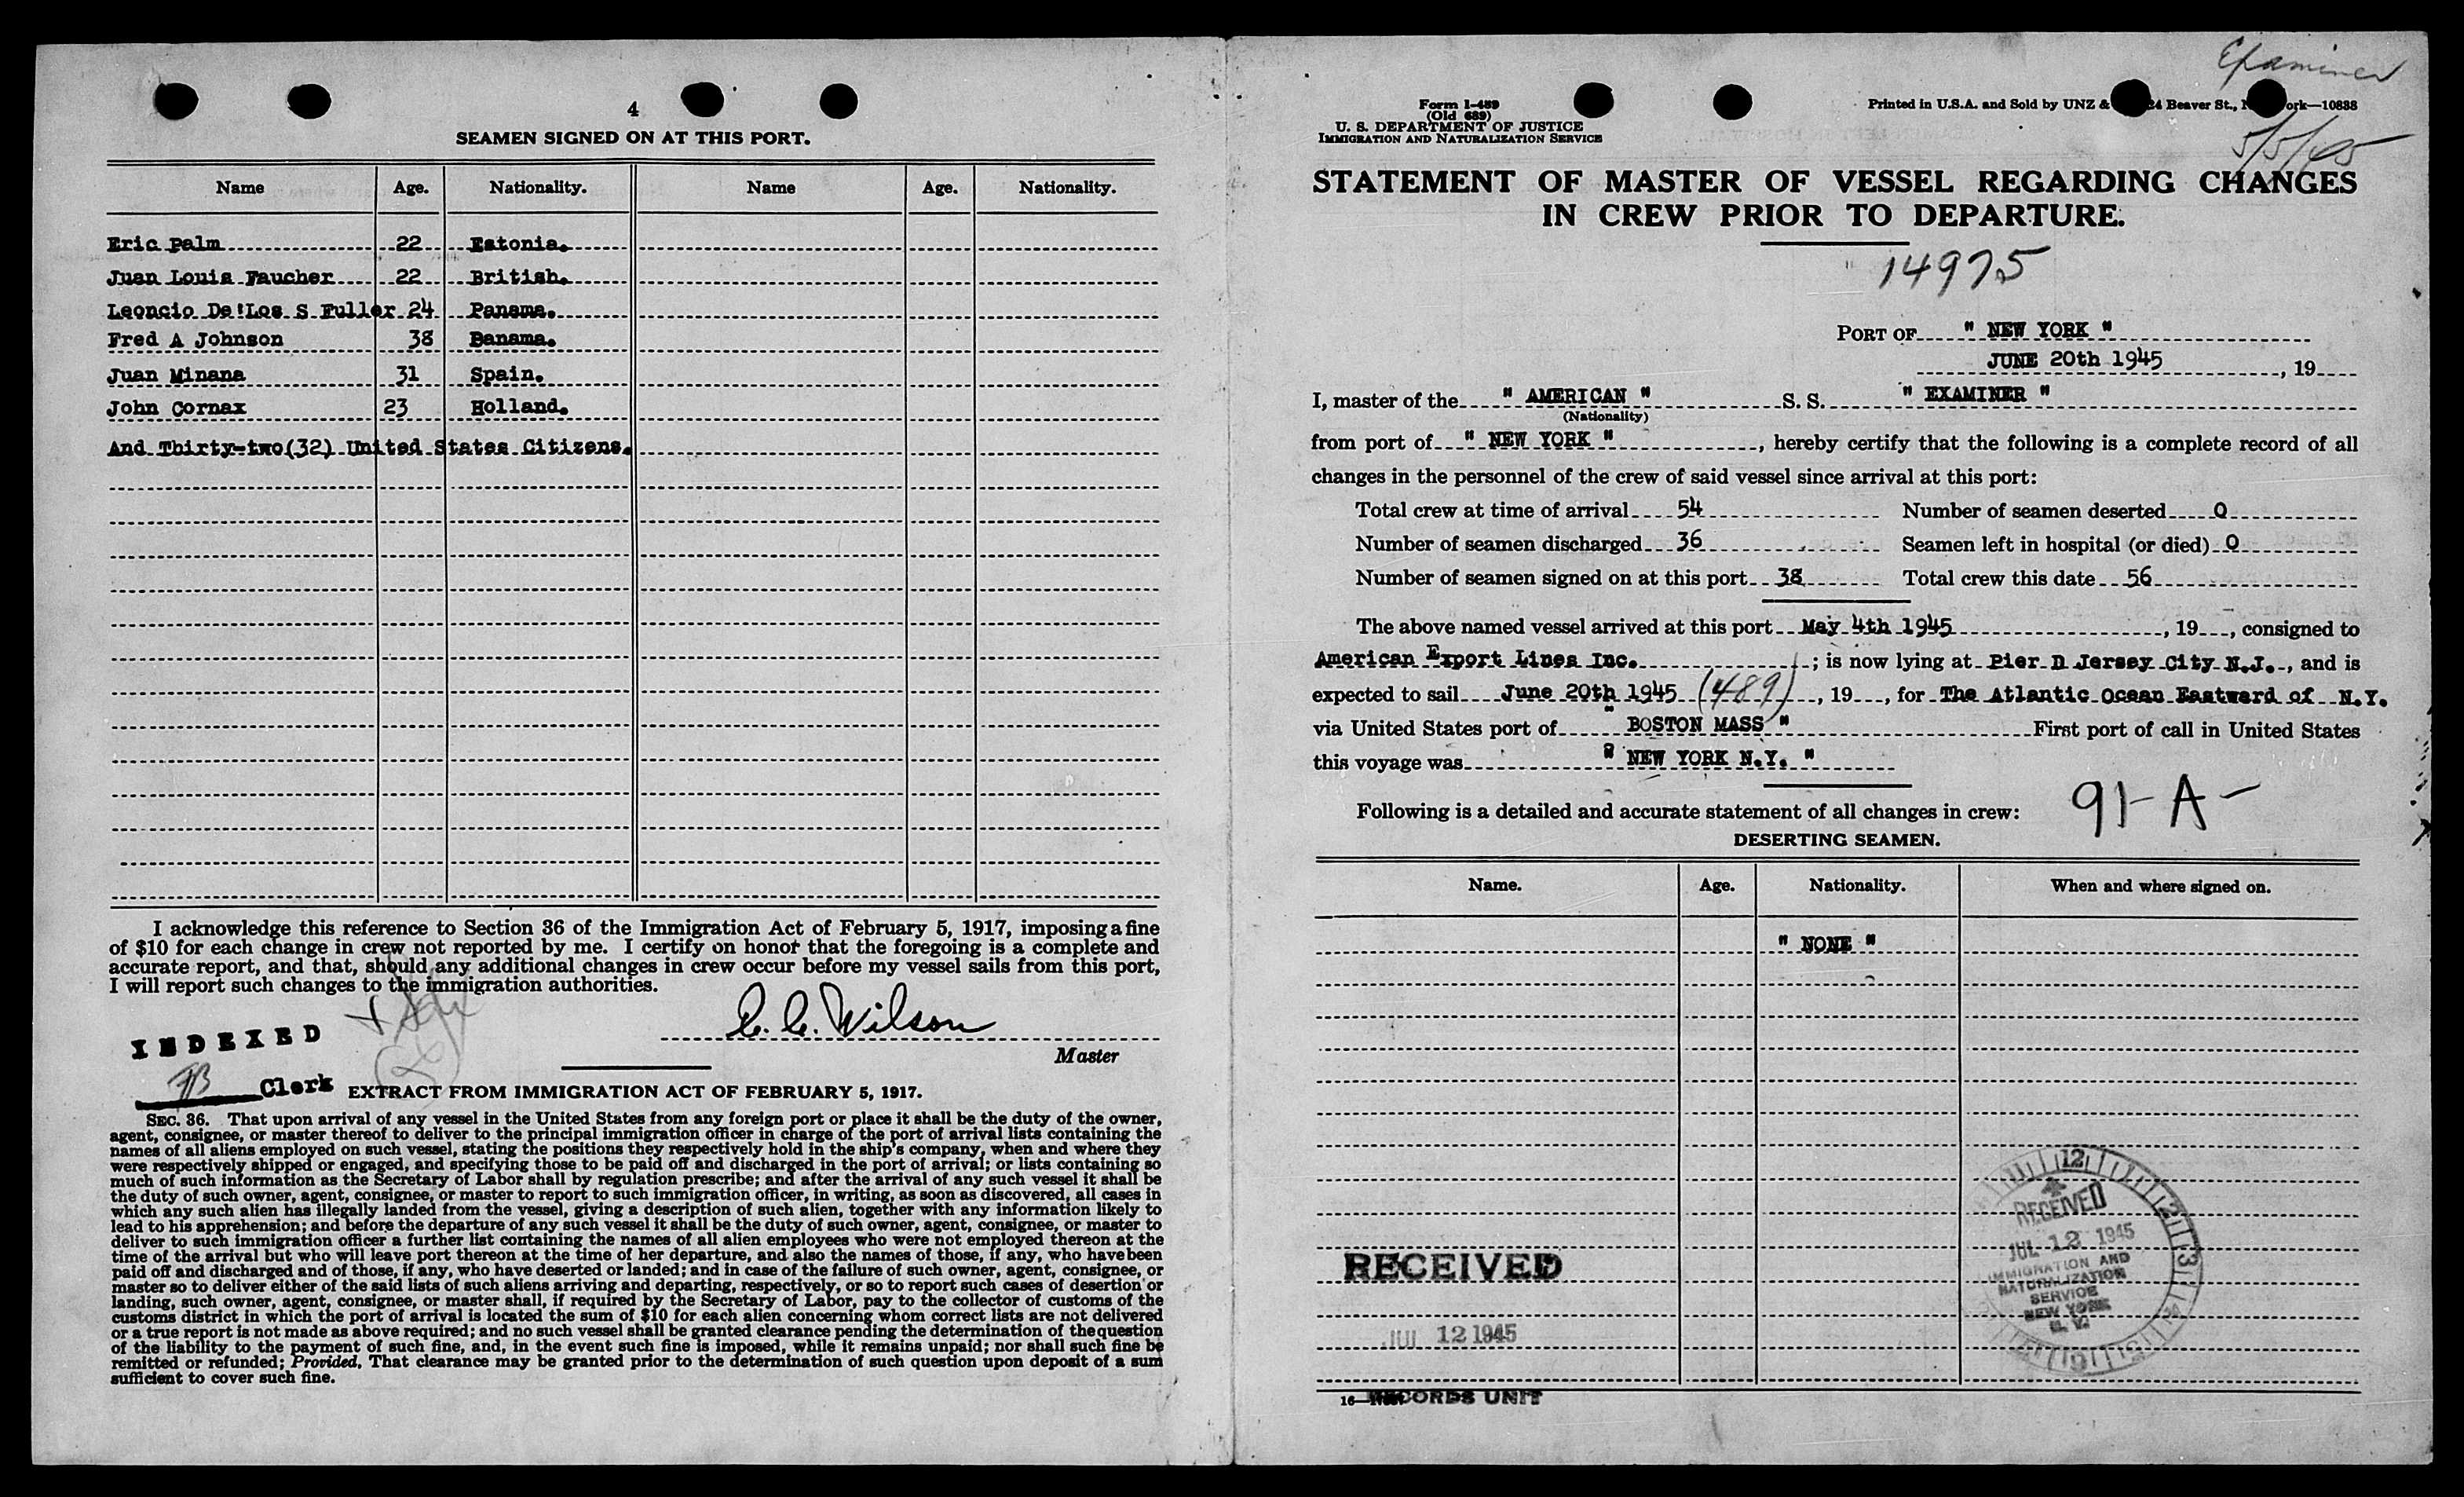 4
SEAMEN SIGNED ON AT THIS PORT.
Name Age. Nationality. Name Age. Nationality.
Eric Palm 22 Estonia.
Juan Louis Faucher 22 British.
Leoncio De'Los S Fuller 24 Panama.
Fred A Johnson 38 Panama.
Juan Minana 31 Spain.
John Cornax 23 Holland.
And Thirty-two(32) United States Citizens.
I acknowledge this reference to Section 36 of the Immigration Act of February 5, 1917, imposing a fine
of $10 for each change in crew not reported by me. I certify on honor that the foregoing is a complete and
accurate report, and that, should any additional changes in crew occur before my vessel sails from this port,
I will report such changes to the immigration authorities.
C. C. Wilson
Master
INDEXED
Clerk
EXTRACT FROM IMMIGRATION ACT OF FEBRUARY 5, 1917.
SEC. 36. That upon arrival of any vessel in the United States from any foreign port or place it shall be the duty of the owner,
agent, consignee, or master thereof to deliver to the principal immigration officer in charge of the port of arrival lists containing the
names of all aliens employed on such vessel, stating the positions they respectively hold in the ship's company, when and where they
were respectively shipped or engaged, and specifying those to be paid off and discharged in the port of arrival; or lists containing so
much of such information as the Secretary of Labor shall by regulation prescribe; and after the arrival of any such vessel it shall be
the duty of such owner, agent, consignee, or master to report to such immigration officer, in writing, as soon as discovered, all cases in
which any such alien has illegally landed from the vessel, giving a description of such alien, together with any information likely to
lead to his apprehension; and before the departure of any such vessel it shall be the duty of such owner, agent, consignee, or master to
deliver to such immigration officer a further list containing the names of all alien employees who were not employed thereon at the
time of the arrival but who will leave port thereon at the time of her departure, and also the names of those, if any, who have been
paid off and discharged and of those, if any, who have deserted or landed; and in case of the failure of such owner, agent, consignee, or
master so to deliver either of the said lists of such aliens arriving and departing, respectively, or so to report such cases of desertion or
landing, such owner, agent, consignee, or master shall, if required by the Secretary of Labor, pay to the collector of customs of the
customs district in which the port of arrival is located the sum of $10 for each alien concerning whom correct lists are not delivered
or a true report is not made as above required; and no such vessel shall be granted clearance pending the determination of the question
of the liability to the payment of such fine, and, in the event such fine is imposed, while it remains unpaid; nor shall such fine be
remitted or refunded; Provided, That clearance may be granted prior to the determination of such question upon deposit of a sum
sufficient to cover such fine.
Examiner
5/5/45
Form I-489
(Old 689)
U. S. DEPARTMENT OF JUSTICE
IMMIGRATION AND NATURALIZATION SERVICE
Printed in U.S.A. and Sold by UNZ & 24 Beaver St., ork—10838
STATEMENT OF MASTER OF VESSEL REGARDING CHANGES
IN CREW PRIOR TO DEPARTURE.
14975
PORT OF " NEW YORK "
JUNE 20th 1945, 19
I, master of the " AMERICAN " S. S. " EXAMINER "
(Nationality)
from port of " NEW YORK ", hereby certify that the following is a complete record of all
changes in the personnel of the crew of said vessel since arrival at this port:
Total crew at time of arrival 54 Number of seamen deserted 0
Number of seamen discharged 36 Seamen left in hospital (or died) 0
Number of seamen signed on at this port 38 Total crew this date 56
The above named vessel arrived at this port May 4th 1945, 19, consigned to
American Export Lines Inc.; is now lying at Pier D Jersey City N.J., and is
expected to sail June 20th 1945 (489), 19, for The Atlantic Ocean Eastward of N.Y.
via United States port of " BOSTON MASS " First port of call in United States
this voyage was " NEW YORK N.Y. "
Following is a detailed and accurate statement of all changes in crew:
91-A-
DESERTING SEAMEN.
Name. Age. Nationality. When and where signed on.
" NONE "
12
RECEIVED
JUL 12 1945
IMMIGRATION AND
NATURALIZATION
SERVICE
NEW YORK
N. Y.
RECEIVED
JUL 12 1945
RECORDS UNIT